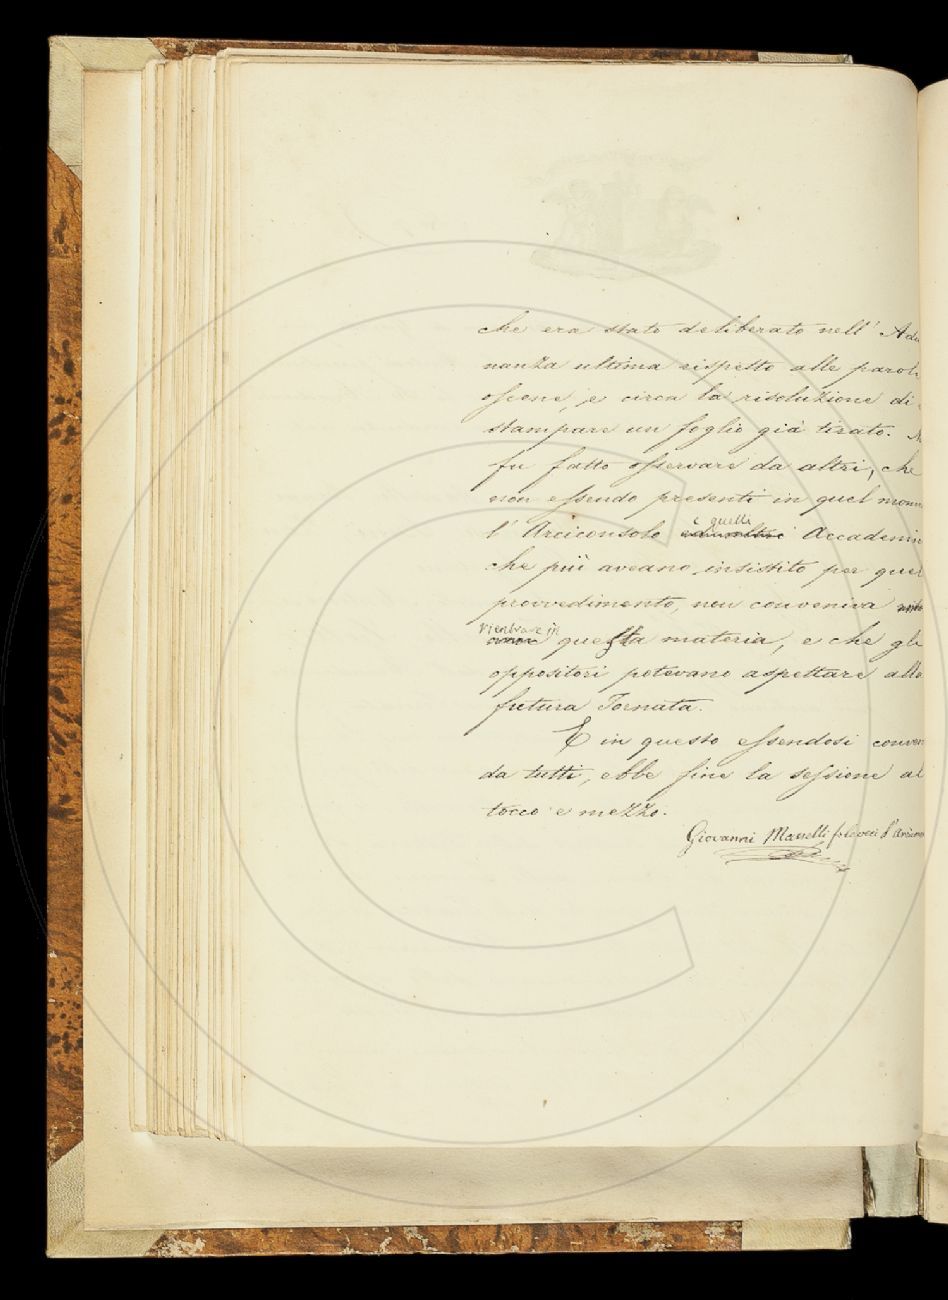 che era stato deliberato nell' Adu
nanza ultima rispetto alle parole
oscene, e circa la risoluzione di
stampare un foglio già tirato. M
fu fatto osservare da altri, che
non essendo presenti in quel mom
e quelli
l' Arciconsolo Accademi
che più aveano insistito per quel
provvedimento, non conveniva
rientrare in
questa materia, e che gli
oppositori potevano aspettare alla
futura Tornata.
E in questo essendosi conven
da tutti, ebbe fine la sessione al
tocco e mezzo.
Giovanni Masselli